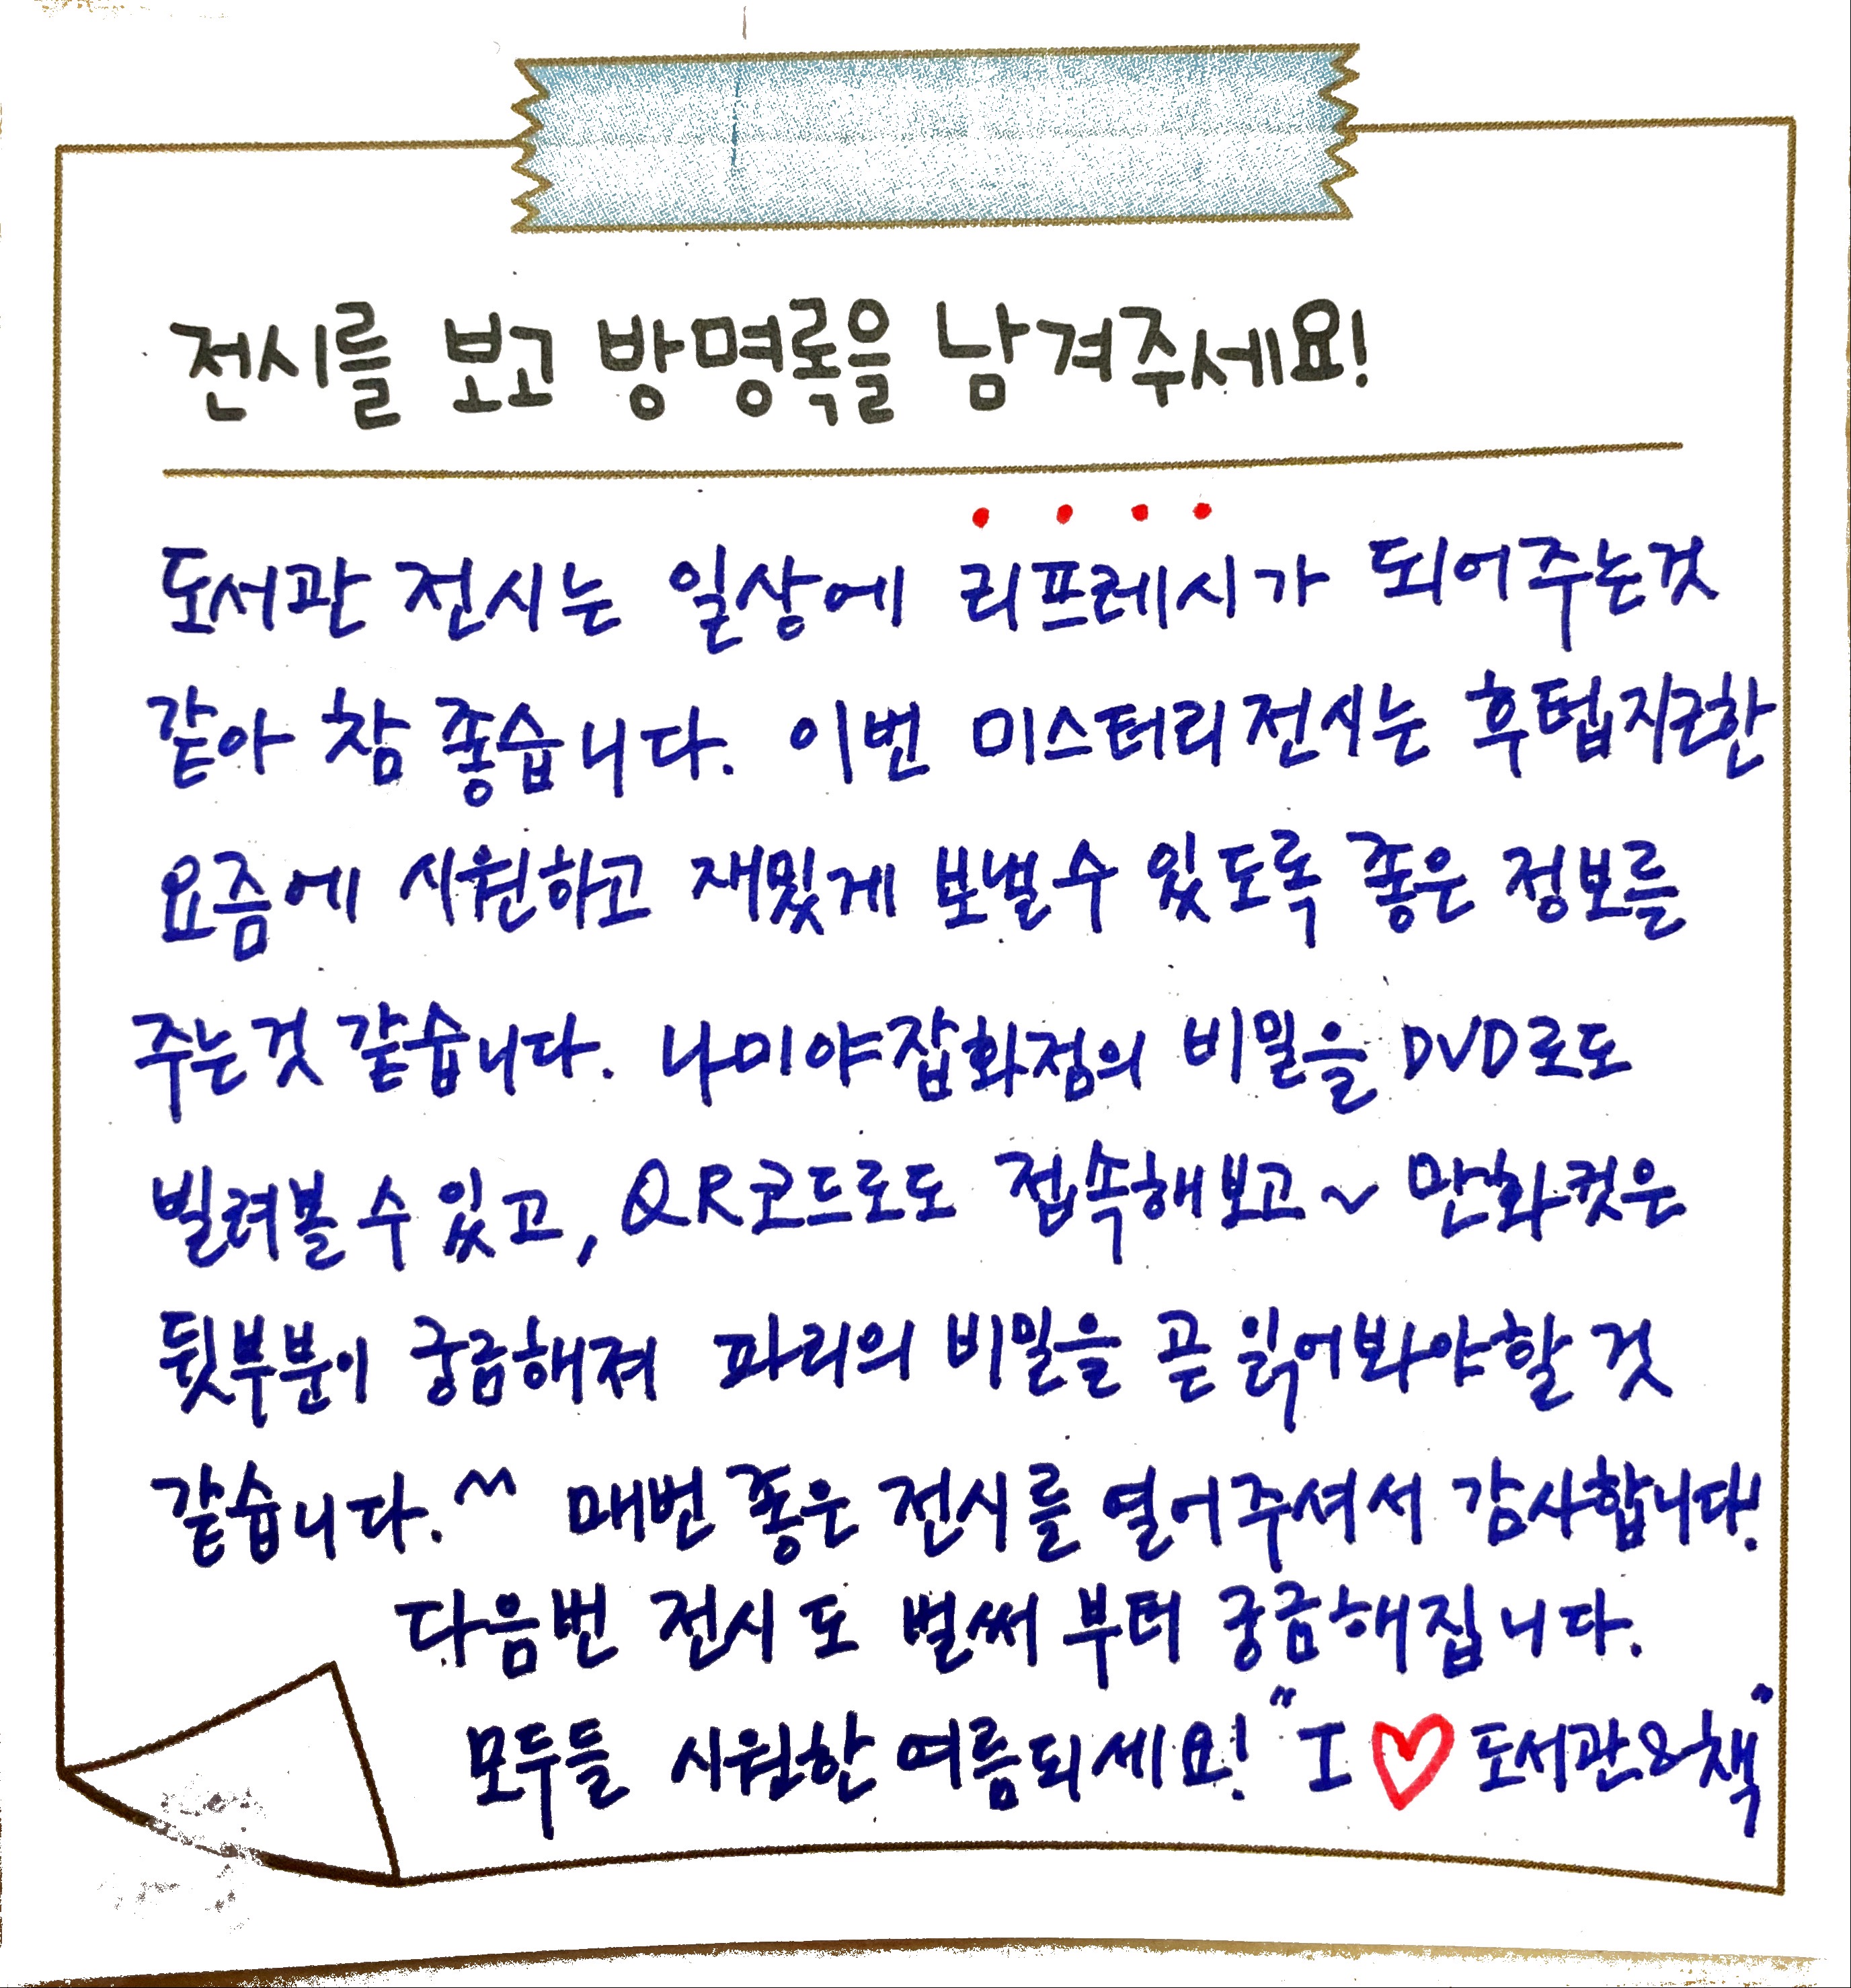 전시를 보고 방명록을 남겨주세요!
도서관 전시는 일상에 리프레시가 되어주는것
같아 참 좋습니다. 이번 미스터리 전시는 후텁지근한
요즘에 시원하고 재밌게 보낼수 있도록 좋은 정보를
주는것 같습니다. 나미야잡화점의 비밀을 DVD로도
빌려볼 수 있고, QR코드로도 접속해보고~ 만화컷은
뒷부분이 궁금해져 파리의 비밀을 곧 읽어봐야할 것
같습니다.^^ 매번 좋은 전시를 열어주셔서 감사합니다!
다음번 전시도 벌써 부터 궁금해집니다.
모두들 시원한 여름되세요! "I ♡ 도서관&책"